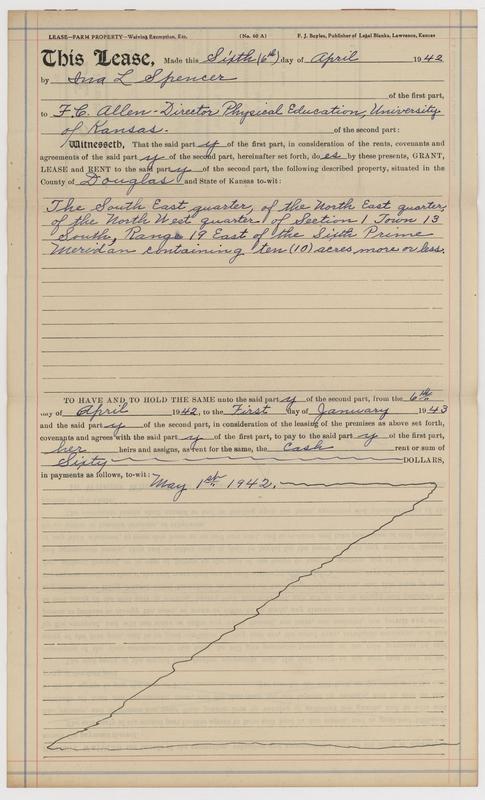 LEASE—FARM PROPERTY—Waiving Exemption, Etc. (No. 60 A) F. J. Boyles, Publisher of Legal Blanks, Lawrence, Kansas
This Lease, Made this Sixth (6th) day of April 1942
by Ina L Spencer
of the first part,
to F.C. Allen - Director Physical Education, University
of Kansas. of the second part:
Witnesseth, That the said party of the first part, in consideration of the rents, covenants and
agreements of the said party of the second part, hereinafter set forth, does by these presents, GRANT,
LEASE and RENT to the said party of the second part, the following described property, situated in the
County of Douglas and State of Kansas to-wit:
The South East quarter, of the North East quarter,
of the North West quarter of Section 1 Town 13
South, Range 19 East of the Sixth Prime
Meridan containing ten (10) acres more or less.
TO HAVE AND TO HOLD THE SAME unto the said party of the second part, from the 6th
day of April 1942, to the First day of January 1943
and the said party of the second part, in consideration of the leasing of the premises as above set forth,
covenants and agrees with the said party of the first part, to pay to the said party of the first part,
her heirs and assigns, as rent for the same, the Cash rent or sum of
Sixty DOLLARS,
in payments as follows, to-wit:
May 1st 1942.